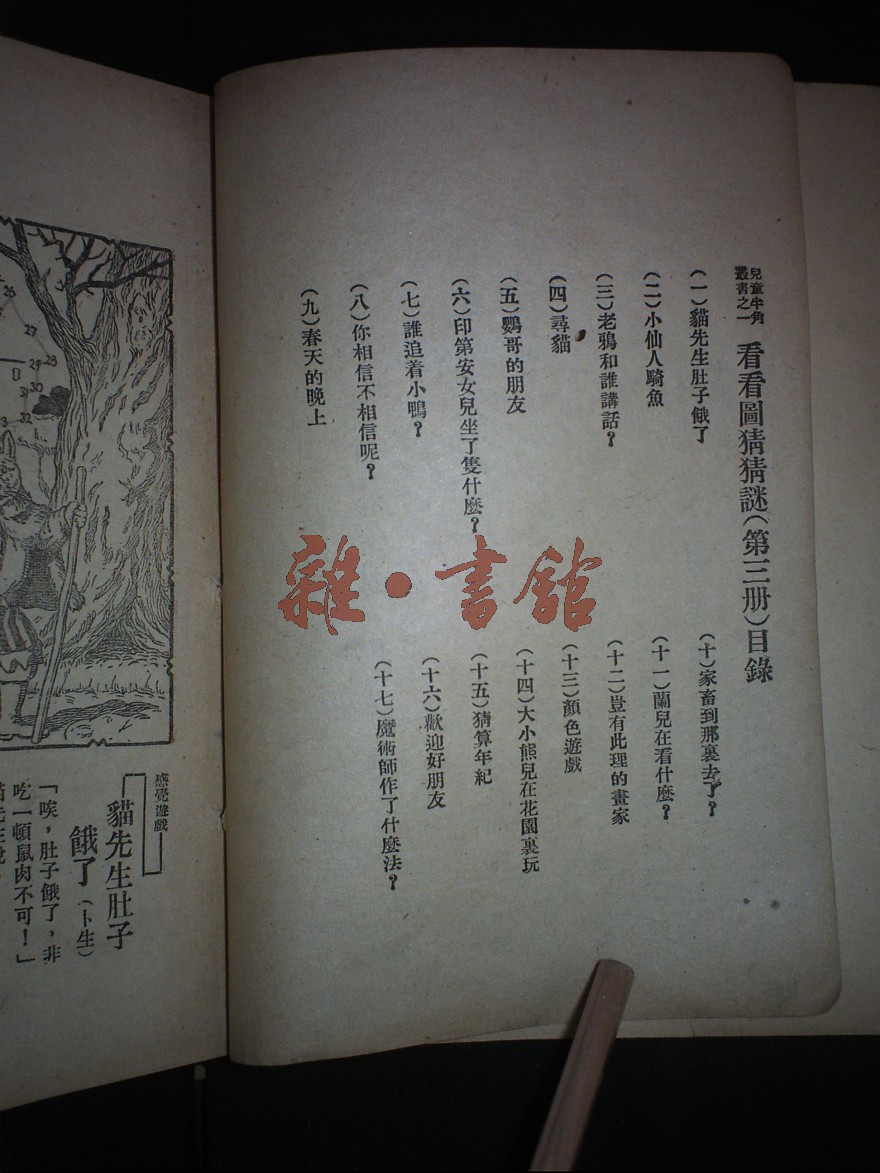 兒童半角
叢書之一
看看圖猜猜謎（第三册）目錄
（一）貓先生肚子餓了
（二）小仙人騎魚
（三）老鴉和誰講話？
（四）尋貓
（五）鸚哥的朋友
（六）印第安女兒坐了隻什麼？
（七）誰追着小鴨？
（八）你相信不相信呢？
（九）春天的晚上
（十）家畜到那裏去了？
（十一）蘭兒在看什麼？
（十二）豈有此理的畫家
（十三）顏色遊戲
（十四）大小熊兒在花園裏玩
（十五）猜算年紀
（十六）歡迎好朋友
（十七）魔術師作了什麼法？
雜·書館
26
27
28
29
30
31
32
感覺遊戲
貓先生肚子
餓了（卜生）
「唉，肚子餓了，非
吃一頓鼠肉不可！」